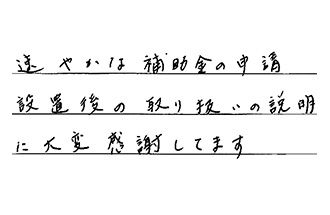 速やかな補助金の申請
設置後の取り扱いの説明
に大変感謝してます